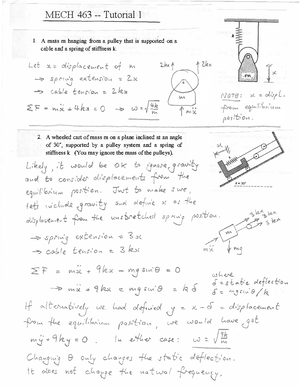 MECH 463 -- Tutorial 1
1. A mass m hanging from a pulley that is supported on a
cable and a spring of stiffness k.
Let x = displacement of m
→ spring extension = 2x
→ cable tension = 2kx
ΣF = mẍ + 4kx = 0 → ω = √(4k/m)
2kx
2kx
m
mẍ
NOTE: x = displ.
from equilibrium
position.
2. A wheeled cart of mass m on a plane inclined at an angle
of 30°, supported by a pulley system and a spring of
stiffness k. (You may ignore the mass of the pulleys).
Likely, it would be OK to ignore gravity
and to consider displacements from the
equilibrium position. Just to make sure,
lets include gravity and define x as the
displacement from the unstretched spring position.
→ spring extension = 3x
→ cable tension = 3kx
ΣF = mẍ + 9kx - mg sinθ = 0
→ mẍ + 9kx = mg sinθ = kδ
3kx
3kx
3kx
m
mẍ
mg
where
δ = static deflection
δ = mg sinθ/k
If alternatively we had defined y = x - δ = displacement
from the equilibrium position, we would have got
mÿ + 9ky = 0. In either case: ω = √(9k/m)
Changing θ only changes the static deflection.
It does not change the natural frequency.